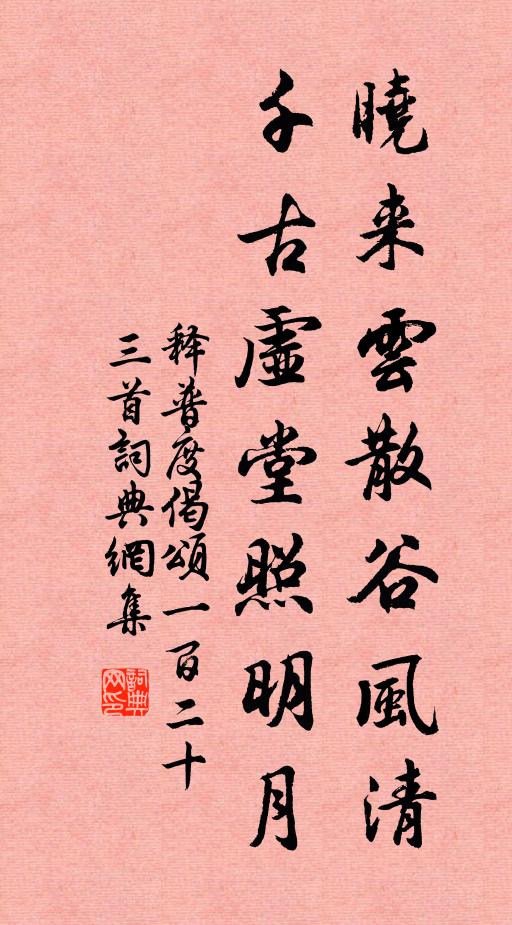 曉来雲散谷風清
千古虛堂照明月
释普度偈頌一百二十
三首詞典網集
詞典网印